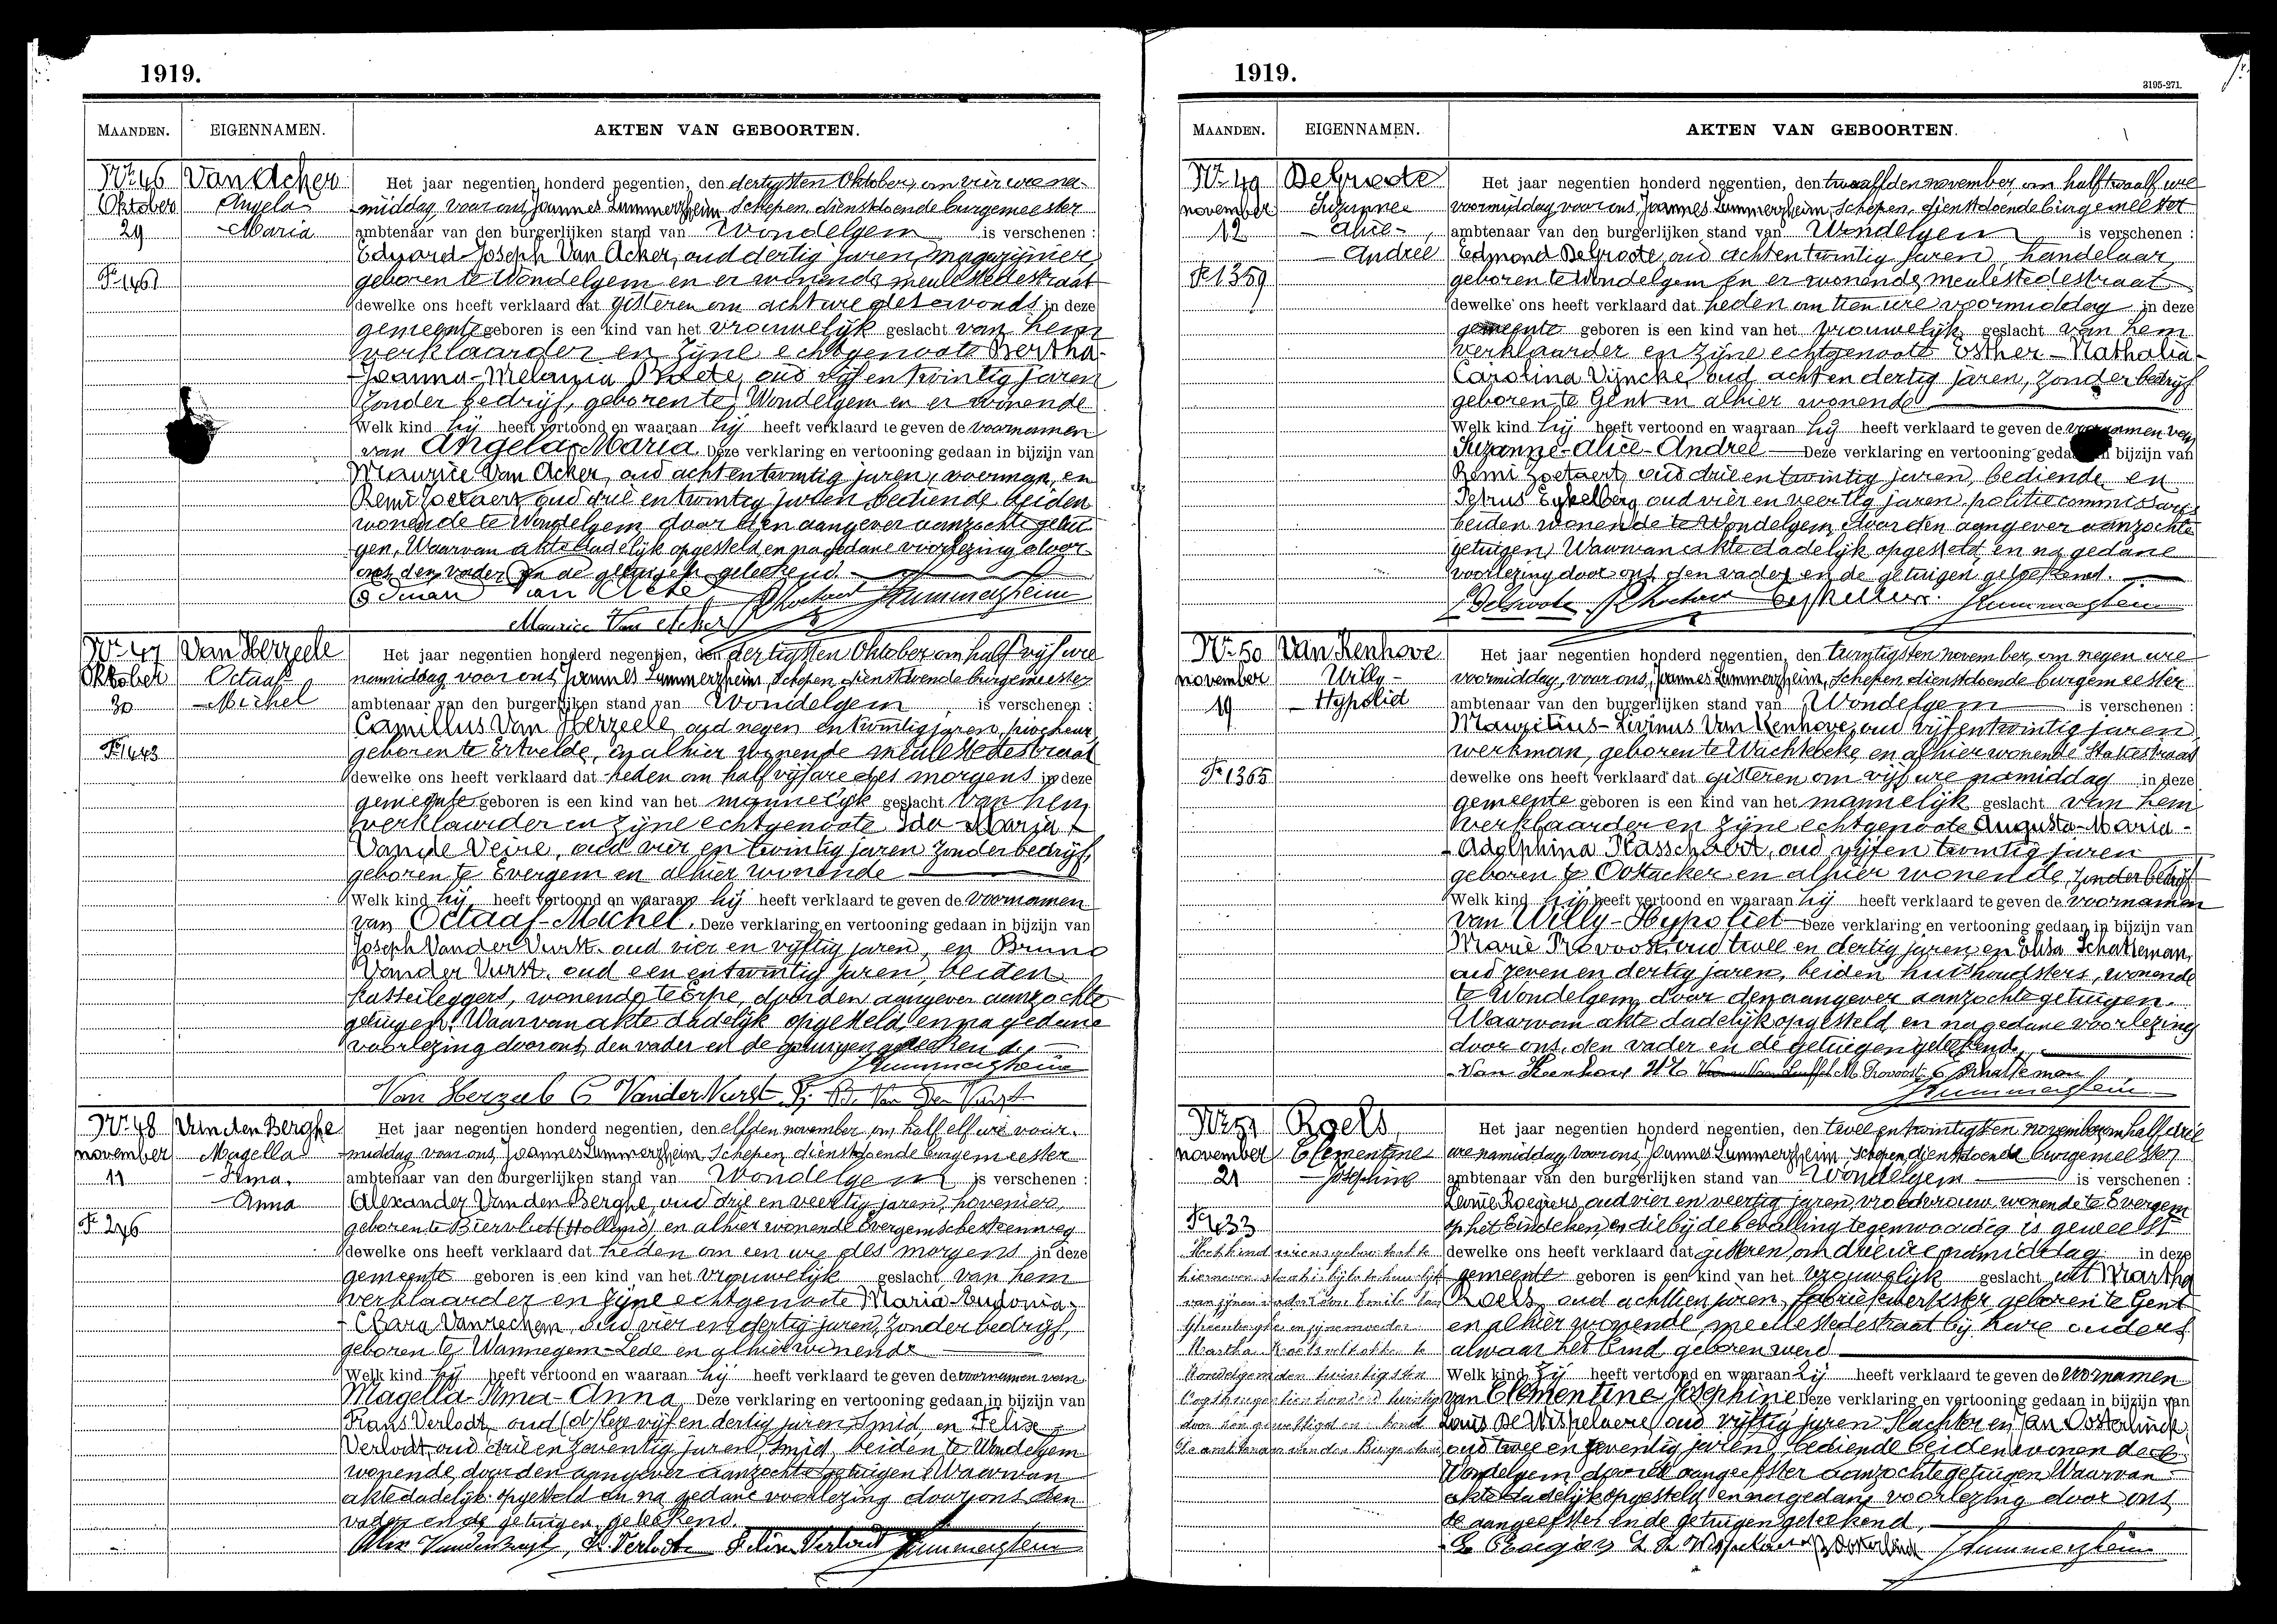 1919.
MAANDEN. EIGENNAMEN. AKTEN VAN GEBOORTEN.
Nr. 46 Van Acker Het jaar negentien honderd negentien, den dertigsten Oktober, om vier ure na-
Oktober Angela middag, voor ons, Joannes Lummerzheim, Schepen, dienstdoende burgemeester
29 - Maria ambtenaar van den burgerlijken stand van Wondelgem is verschenen :
Eduard-Joseph Van Acker, oud dertig jaren, magazijnier,
geboren te Wondelgem en er wonende, meulestedestraat
dewelke ons heeft verklaard dat gisteren om acht ure des avonds in deze
gemeente geboren is een kind van het vrouwelijk geslacht van hem
verklaarder en zijne echtgenoote Bertha-
-Joanna-Melania oud vijf en twintig jaren
zonder bedrijf, geboren te Wondelgem en er wonende
Welk kind hij heeft vertoond en waaraan hij heeft verklaard te geven de voornamen
van Angela-Maria. Deze verklaring en vertooning gedaan in bijzijn van
Maurice Van Acker, oud acht en twintig jaren, voerman, en
Remi Zoetaert, oud drie en twintig jaren, bediende, beiden
wonende te Wondelgem, door den aangever aanzochte getui-
gen. Waarvan akte dadelijk opgesteld en na gedane voorlezing door
ons, den vader en de getuigen geteekend.
Maurice Van Acker
Nr. 47 Van Herzeele Het jaar negentien honderd negentien, den dertigsten Oktober om half vijf ure
Oktober Octaaf namiddag, voor ons, Joannes Lummerzheim, Schepen, dienstdoende burgemeester
30 - Michel ambtenaar van den burgerlijken stand van Wondelgem is verschenen :
Camillus Van Herzeele, oud negen en twintig jaren, piocheur,
geboren te Ertvelde, en alhier wonende meulestedestraat
dewelke ons heeft verklaard dat heden om half vijf ure des morgens in deze
gemeente geboren is een kind van het mannelijk geslacht van hem
verklaarder en zijne echtgenoote Ida-Maria
Van de Veire, oud vier en twintig jaren zonder bedrijf,
geboren te Evergem en alhier wonende
Welk kind hij heeft vertoond en waaraan hij heeft verklaard te geven de voornamen
van Octaaf-Michel. Deze verklaring en vertooning gedaan in bijzijn van
Joseph Vander Vurst, oud vier en vijftig jaren, en Bruno
Vander Vurst, oud een en twintig jaren, beiden
kasseileggers, wonende te Erpe, door den aangever aanzochte
getuigen. Waarvan akte dadelijk opgesteld en na gedane
voorlezing door ons, den vader en de getuigen geteekend.
Lummerzheim
Van Herzeele C Vander Vurst J. B. Van Der Vurst
Nr. 48 Van den Berghe Het jaar negentien honderd negentien, den elfden november om half elf ure voor-
november Magella middag voor ons, Joannes Lummerzheim Schepen, dienstdoende burgemeester
11 - Irma. ambtenaar van den burgerlijken stand van Wondelgem is verschenen :
- Anna Alexander Van den Berghe, oud drie en veertig jaren, hovenier,
geboren te Biervliet (Holland) en alhier wonende Evergemschesteenweg
dewelke ons heeft verklaard dat heden om een ure des morgens in deze
gemeente geboren is een kind van het vrouwelijk geslacht van hem
verklaarder en zijne echtgenoote Maria-Eudonia-
- Clara Vanrechem, oud vier en dertig jaren, zonder bedrijf,
geboren te Wannegem-Lede en alhier wonende
Welk kind hij heeft vertoond en waaraan hij heeft verklaard te geven de voornamen van
Magella-Irma-Anna. Deze verklaring en vertooning gedaan in bijzijn van
Frans Verlodt, oud vijf en dertig jaren, smid, en Felix
Verlodt oud drie en zeventig jaren, smid, beiden te Wondelgem
wonende, door den aangever aanzochte getuigen. Waarvan
akte dadelijk opgesteld en na gedane voorlezing door ons den
vader en de getuigen geteekend.
Lummerzheim
1919.
3195-271.
MAANDEN. EIGENNAMEN. AKTEN VAN GEBOORTEN.
Nr. 49 DeGroote Het jaar negentien honderd negentien, den twaalfden november om half twaalf ure
november Suzanne voormiddag, voor ons, Joannes Lummerzheim, Schepen, dienstdoende burgemeester
12 - Alice - ambtenaar van den burgerlijken stand van Wondelgem is verschenen :
- Andrée Edmond DeGroote, oud acht en twintig jaren, handelaar,
F. 1359 geboren te Wondelgem en er wonende, meulestedestraat
dewelke ons heeft verklaard dat heden om tien ure voormiddag in deze
gemeente geboren is een kind van het vrouwelijk geslacht van hem
verklaarder en zijne echtgenoote Esther-Nathalia-
Carolina Vijncke, oud acht en dertig jaren, zonder bedrijf
geboren te Gent en alhier wonende
Welk kind hij heeft vertoond en waaraan hij heeft verklaard te geven de voornamen van
Suzanne-Alice-Andrée Deze verklaring en vertooning gedaan in bijzijn van
Remi Zoetaert, oud drie en twintig jaren, bediende, en
Petrus Eykelberg oud vier en veertig jaren, politiecommissaris
beiden wonende te Wondelgem, door den aangever aanzochte
getuigen. Waarvan akte dadelijk opgesteld en na gedane
voorlezing door ons, den vader en de getuigen geteekend.
Lummerzheim
Nr. 50 Van Kenhove Het jaar negentien honderd negentien, den twintigsten november, om negen ure
november Willy - voormiddag, voor ons, Joannes Lummerzheim, Schepen, dienstdoende burgemeester
19 - Hypoliet ambtenaar van den burgerlijken stand van Wondelgem is verschenen :
Mauritius-Livinus Van Kenhove, oud vijf en twintig jaren,
werkman, geboren te Wachtebeke, en alhier wonende
F. 1365 dewelke ons heeft verklaard dat gisteren om vijf ure namiddag in deze
gemeente geboren is een kind van het mannelijk geslacht van hem
verklaarder en zijne echtgenoote Augusta-Maria-
- Adolphina Plasschaert, oud vijf en twintig jaren
geboren te Oostacker en alhier wonende, zonder bedrijf
Welk kind hij heeft vertoond en waaraan hij heeft verklaard te geven de voornamen
van Willy-Hypoliet Deze verklaring en vertooning gedaan in bijzijn van
Marie Provoost, oud twee en dertig jaren, en Elisa Schatteman,
oud zeven en dertig jaren, beiden huishoudsters, wonende
te Wondelgem, door den aangever aanzochte getuigen.
Waarvan akte dadelijk opgesteld en na gedane voorlezing
door ons, den vader en de getuigen geteekend.
Van Kenhove M. Provoost E Schatteman
Lummerzheim
Nr. 51 Roels Het jaar negentien honderd negentien, den twee en twintigsten november om half drie
november Clementine ure namiddag voor ons, Joannes Lummerzheim, Schepen, dienstdoende burgemeester
21 - Josephine ambtenaar van den burgerlijken stand van Wondelgem is verschenen :
Roegiers, oud vier en veertig jaren, vroedvrouw, wonende te Evergem
op het Eindeken, en die bij de bevalling tegenwoordig is geweest
dewelke ons heeft verklaard dat gisteren, om drie ure namiddag in deze
gemeente geboren is een kind van het vrouwelijk geslacht uit Martha
Roels, oud achttien jaren, fabriekwerkster geboren te Gent
en alhier wonende, meulestedestraat bij hare ouders
alwaar het kind geboren werd
Welk kind zij heeft vertoond en waaraan zij heeft verklaard te geven de voornamen
van Clementine Josephine Deze verklaring en vertooning gedaan in bijzijn van
Louis De Wispelaere, oud vijftig jaren slachter en Jan Oosterlinck
oud twee en zeventig jaren, bediende beiden wonende te
Wondelgem, door de aangeefster aanzochte getuigen Waarvan
akte dadelijk opgesteld en na gedane voorlezing door ons,
de aangeefster en de getuigen geteekend.
Lummerzheim